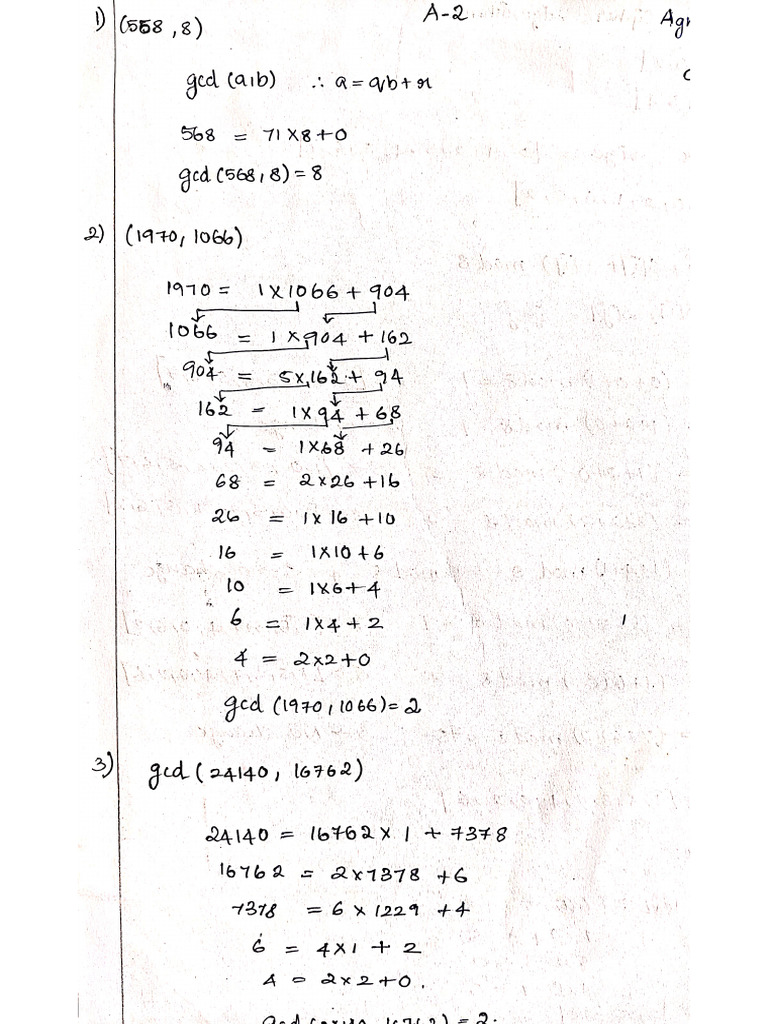 A-2
1) (558,8)
gcd (a,b) ∴ a = qb+r
568 = 71×8+0
gcd (568,8) = 8
2) (1970, 1066)
1970 = 1×1066 + 904
1066 = 1×904 + 162
904 = 5×162 + 94
162 = 1×94 + 68
94 = 1×68 + 26
68 = 2×26 +16
26 = 1×16 +10
16 = 1×10+6
10 = 1×6+4
6 = 1×4+2
4 = 2×2+0
gcd (1970, 1066) = 2
3) gcd (24140, 16762)
24140 = 16762× 1 + 7378
16762 = 2×7378 +6
7378 = 6 × 1229 +4
6 = 4×1 + 2
4 = 2×2+0.
16762) = 2.